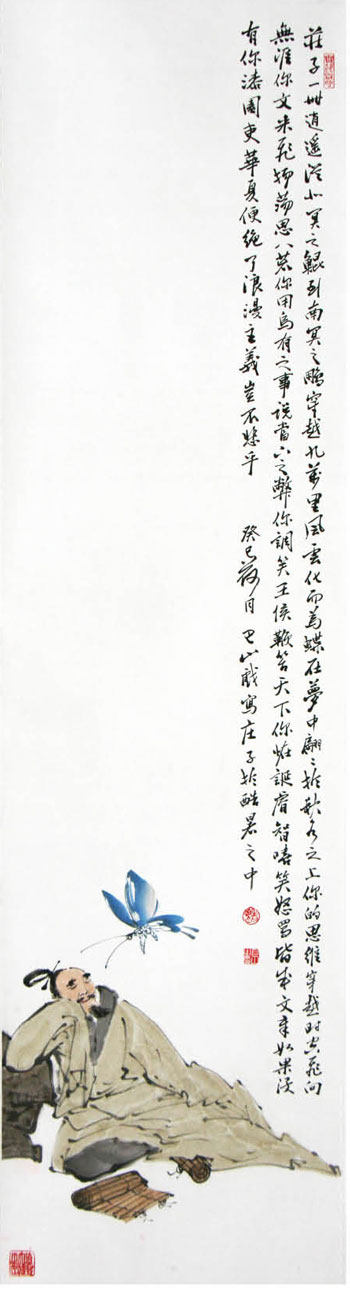 莊子一冊逍遙從北冥之鯤到南冥之鵬穿越九萬里風雲化而為蝶在夢中翩々於秋水之上你的思維穿越时空飛向
無涯你文采飛揚蕩思八荒你用烏有之事说當下之弊你調笑王侯鞭笞天下你怪誕睿智嘻笑怒罵皆成文章如果没
有你漆園吏華夏便绝了浪漫主義豈不悲乎
癸巳荷月巴山戲寫庄子於酷暑之中